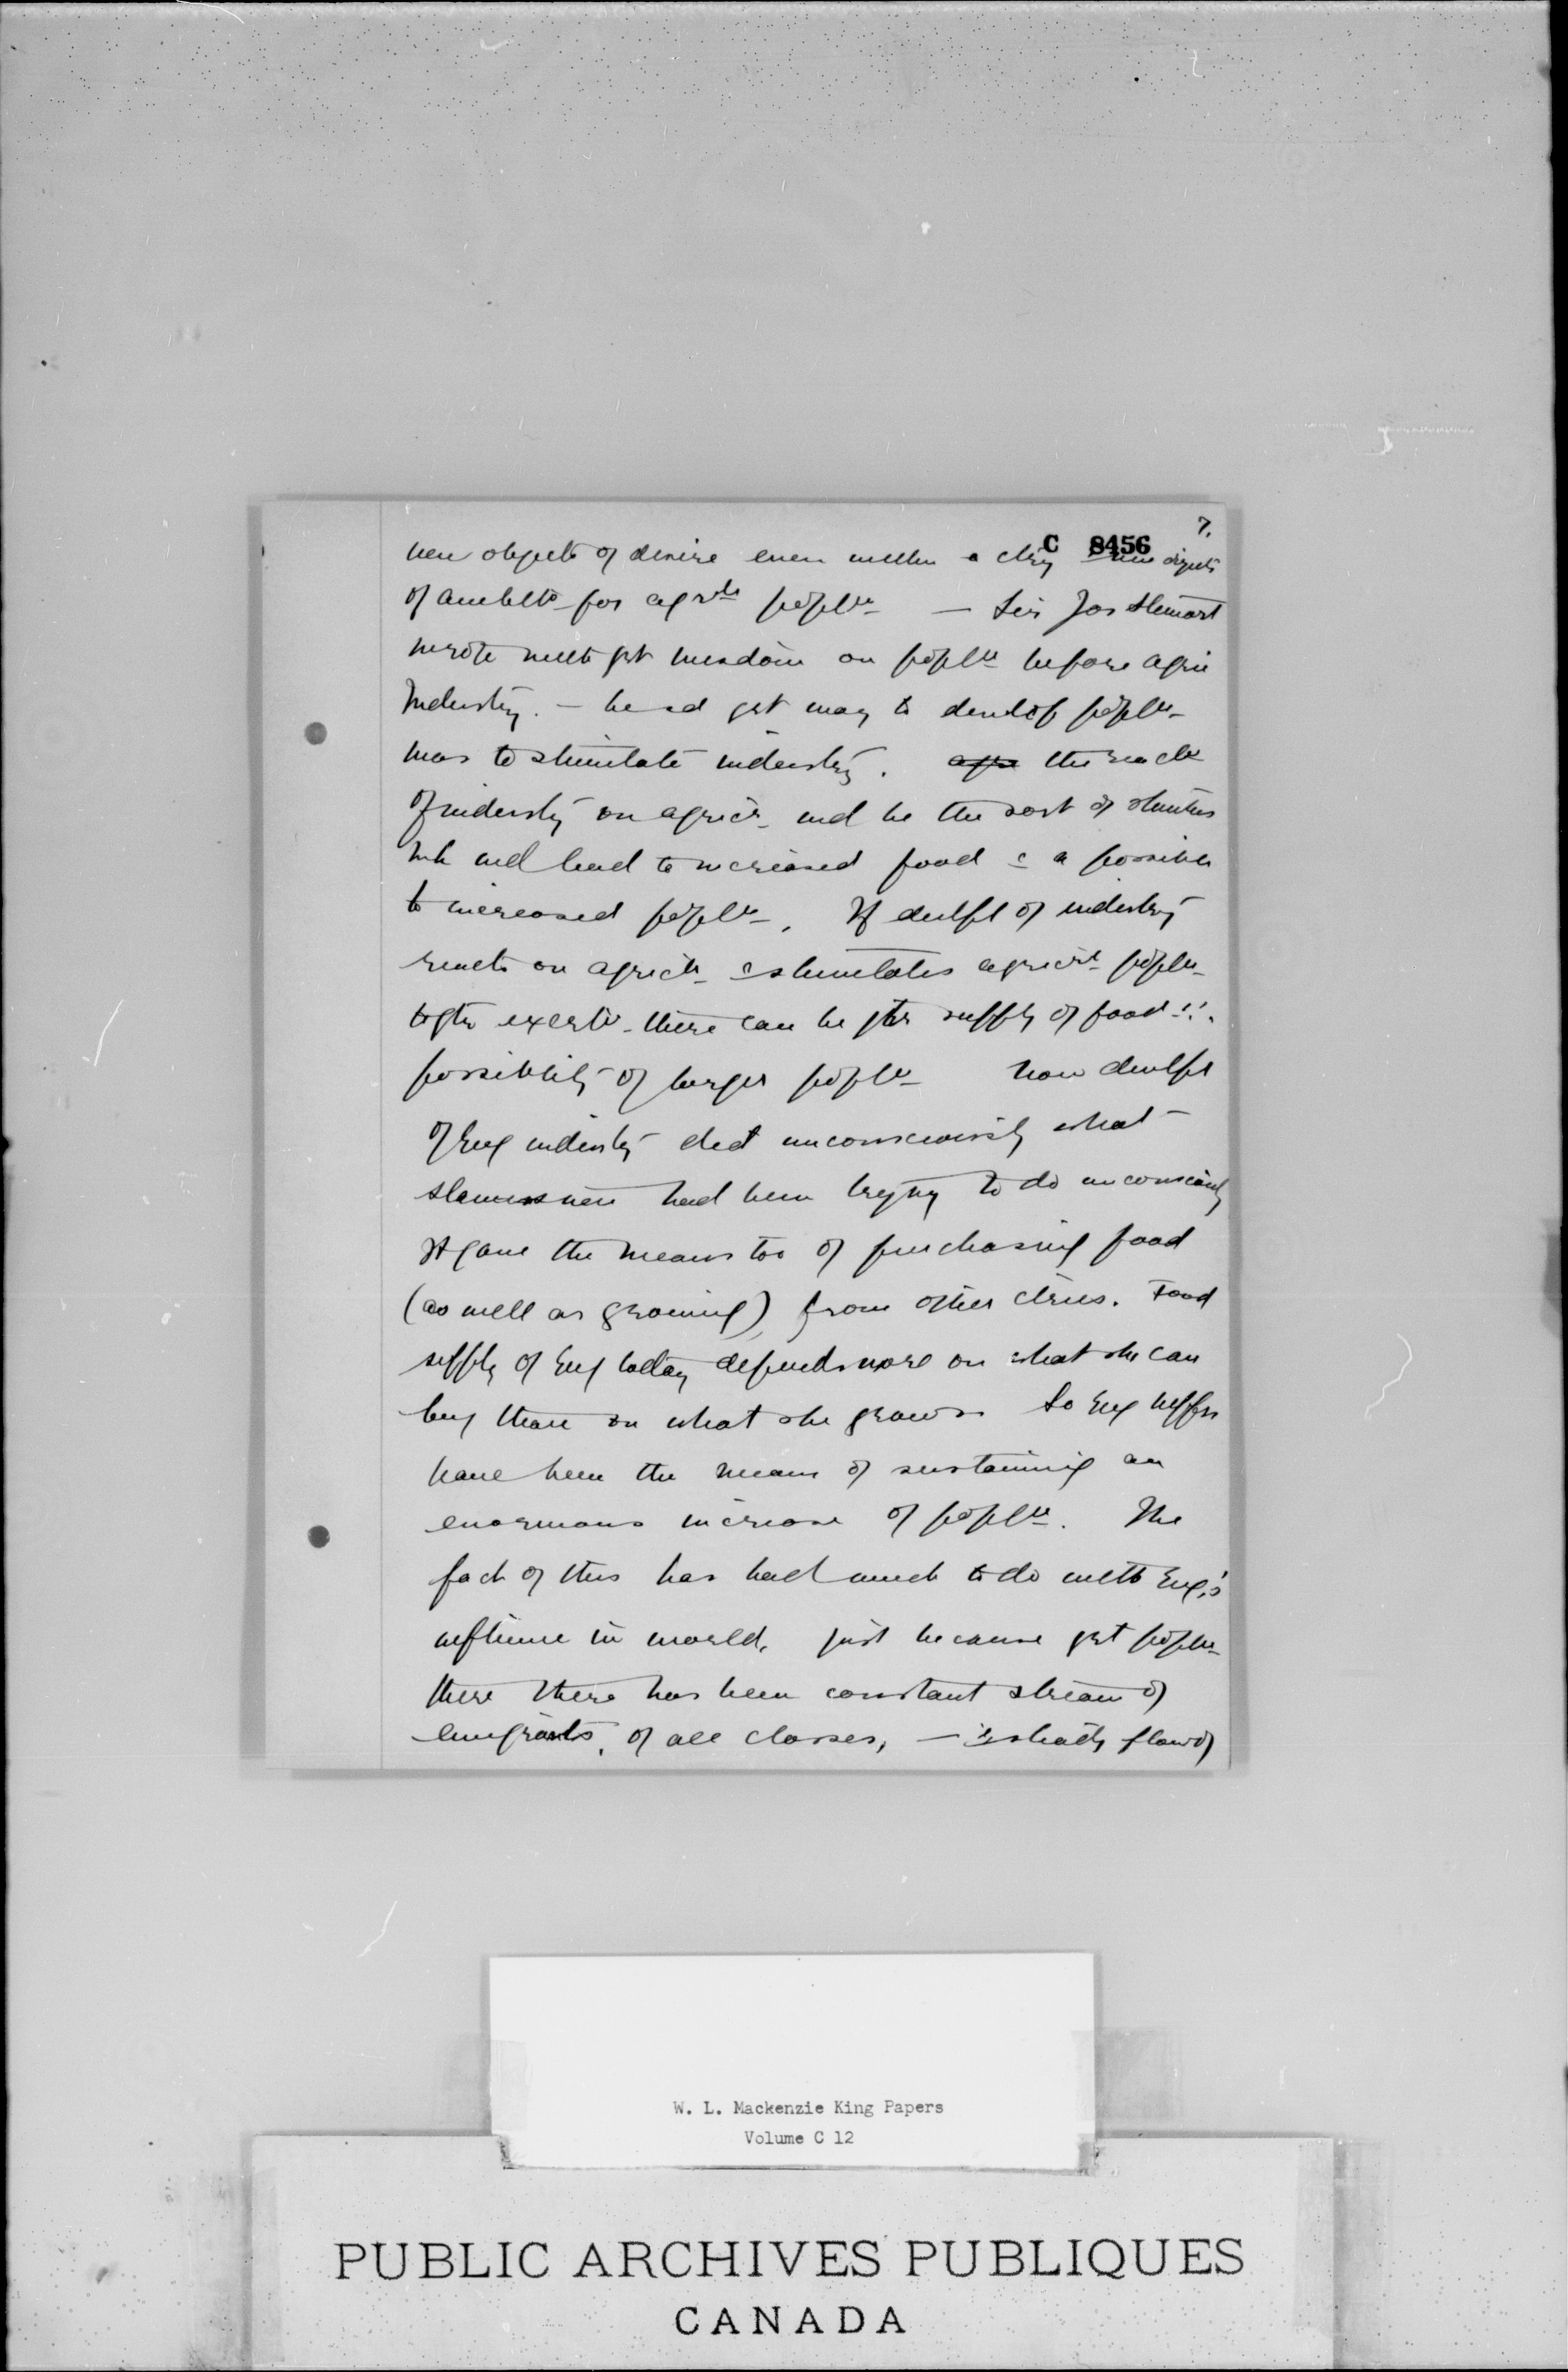 7.
C 8456
new objects of desire even within a ctry new objects
of ambitn for agrcl popltn — Sir Jas Stewart
wrote with grt wisdom on popltn before agric
Industry. — he sd grt way to develop popltn
was to stimulate industry. the reactn
of industry on agricr wd be the sort of stimulus
wh wd lead to increased food & a possible
to increased popltn. If devlpt of industry
reacts on agricr & stimulates agricrl popltn
to gtr exertn there can be gtr supply of food ∴
possibility of larger popltn Now devlpt
of Eng industry did unconsciously what
statesmen had been trying to do unconsciously
It gave the means too of purchasing food
(as well as growing) from other ctries. Food
supply of Eng today depends more on what she can
buy than on what she grows So Eng
have been the means of sustaining an
enormous increase of popltn. The
fact of this has had much to do with Eng's
influence in world, just because grt popltn
there there has been constant stream of
emigrants, of all classes, — steady flow of
W. L. Mackenzie King Papers
Volume C 12
PUBLIC ARCHIVES PUBLIQUES
CANADA